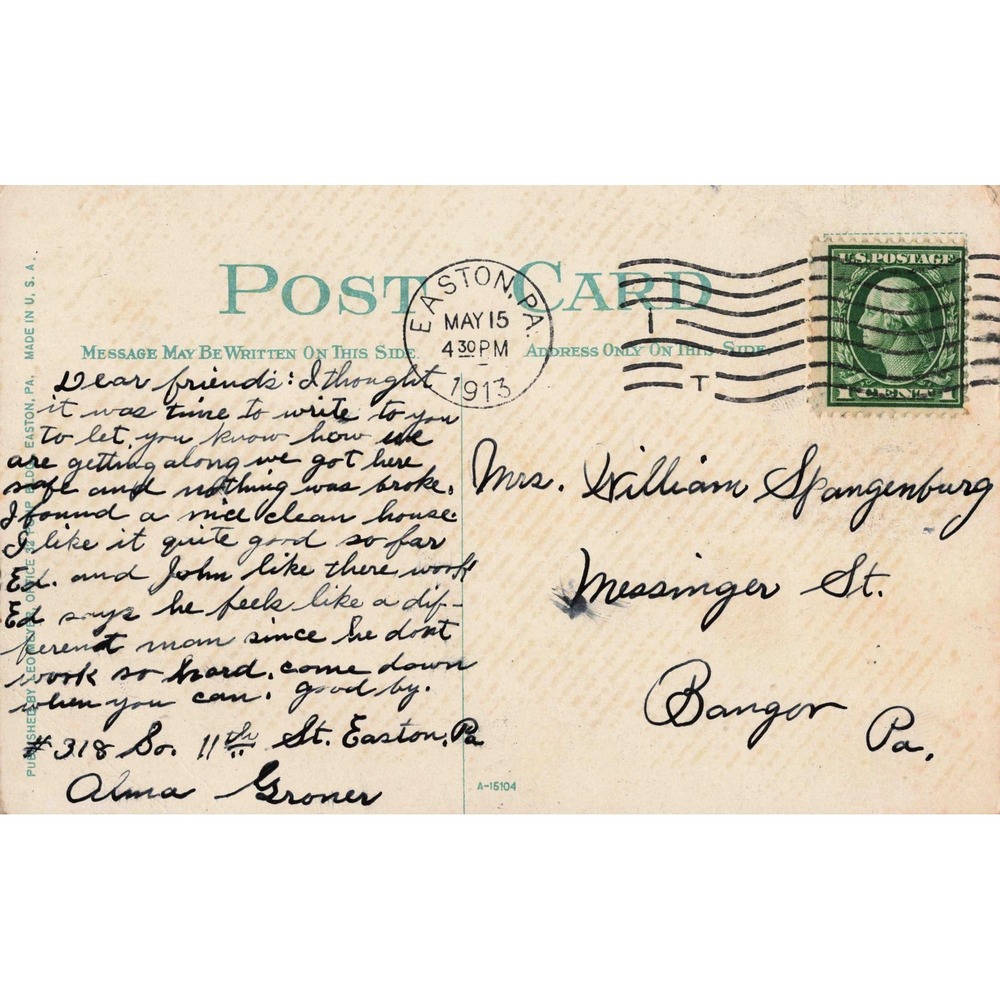 POST CARD
MESSAGE MAY BE WRITTEN ON THIS SIDE
ADDRESS ONLY ON THIS SIDE
EASTON, PA.
MAY 15
4 30 PM
1913
I
T
U.S. POSTAGE
1 CENT 1
Dear friends: I thought
it was time to write to you
to let you know how we
are getting along we got here
safe and nothing was broke.
I found a nice clean house.
I like it quite good so far
Ed. and John like there work
Ed says he feels like a dif-
ferent man since he dont
work so hard. come down
when you can. good by.
#318 So. 11th St. Easton, Pa
Alma Groner
Mrs. William Spangenburg
Messinger St.
Bangor
Pa.
A-15104
PUBLISHED BY LEO MEYER, OFFICE 32 BLDG. EASTON, PA. MADE IN U. S. A.